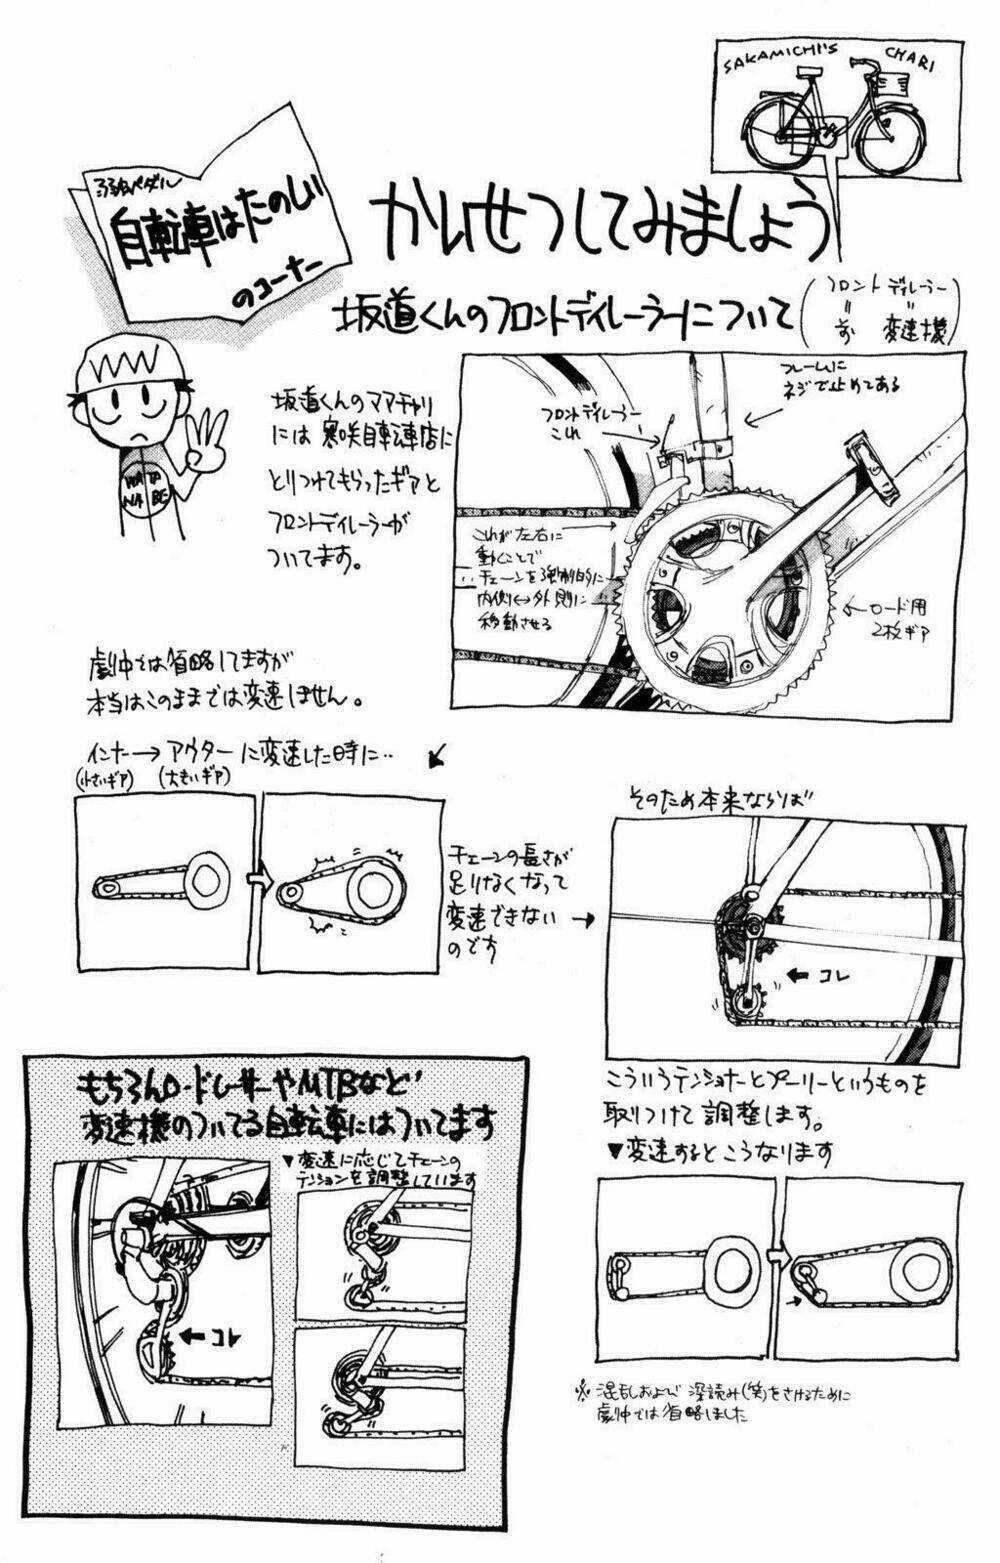 SAKAMICHI'S CHARI
弱虫ペダル
自転車はたのしい
のコーナー
かいせつしてみましょう
坂道くんのフロントディレーラーについて
フロント ディレーラー
〃 〃
前 変速機
WATA
NABE
坂道くんのママチャリ
には 寒咲自転車店に
とりつけてもらったギアと
フロントディレーラーが
ついてます。
フロントディレーラー
これ
フレームに
ネジで止めてある
これが左右に
動くことで
チェーンを強制的に
内側↔外側に
移動させる
ロード用
2枚ギア
劇中では省略してますが
本当はこのままでは変速しません。
インナー→アウターに変速した時に‥
(小さいギア) (大きいギア)
チェーンの長さが
足りなくなって
変速できない
のです
そのため本来ならば
コレ
こういうテンショナーとプーリーというものを
取りつけて調整します。
▼変速するとこうなります
※混乱および深読み(笑)をさけるために
劇中では省略しました
もちろんロードレーサーやMTBなど
変速機のついてる自転車にはついてます
▼変速に応じてチェーンの
テンションを調整しています
コレ